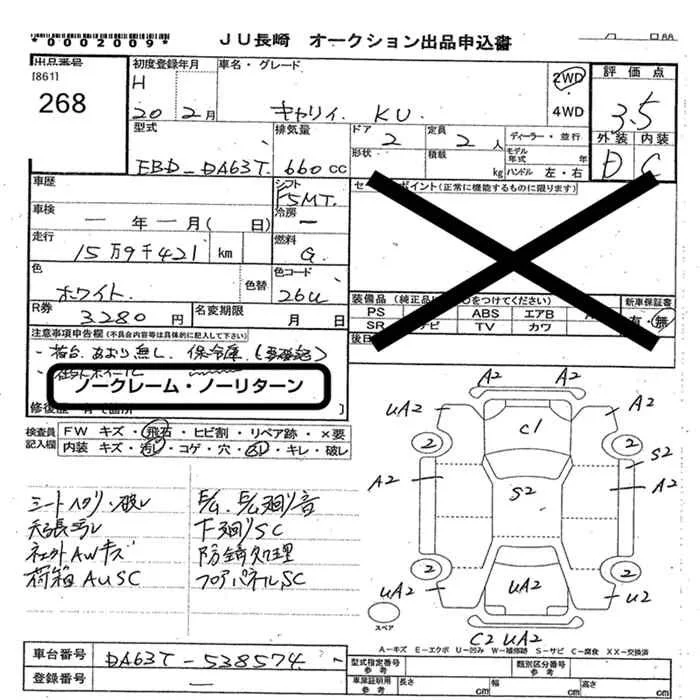 *0002009*
JU長崎 オークション出品申込書
出品番号
[861]
268
初度登録年月
H
20 2月
車名・グレード
キャリィ KU
2WD
4WD
評価点
3.5
外装 内装
D C
型式
EBD-DA63T
排気量
660 cc
ドア
2
定員
2 人
形状
積載
kg
ディーラー・並行
モデル年式 年
ハンドル 左・右
車歴
シフト
F5MT
車検
ー 年 ー 月( 日)
冷房
ー
走行
15万9千421 km
燃料
G
色
ホワイト
色替
色コード
26U
R券
3280 円
名変期限
月 日
セ ポイント(正常に機能するものに限ります)
装備品(純正品に をつけてください)
PS ABS エアB
SR ナビ TV カワ
新車保証書
有・無
後日
注意事項申告欄(不具合内容等は具体的に記入して下さい)
・荷台あおり無し. 保冷庫
ノークレーム・ノーリターン
修復歴 有(箇所 )
検査員記入欄
FW キズ・飛石・ヒビ割・リペア跡・×要
内装 キズ・汚レ・コゲ・穴・凹レ・キレ・破レ
シートヘタリ・破レ
天張汚レ
社外AWキズ
荷箱AUSC
E/G. E/G廻り音
下廻りSC
防錆処理
フロアパネルSC
A2 A2
UA2 A2
C1
2 2
S2
A2 S2 A2
2 2
UA2 UA2 U2
C2 UA2
スペア
A-キズ E-エクボ U-凹み W-補修跡 S-サビ C-腐食 XX-交換済
車台番号
DA63T-538574
登録番号
ー
型式指定番号
参考
類別区分番号
参考
車庫証明用
参考
長さ cm
幅 cm
高さ cm